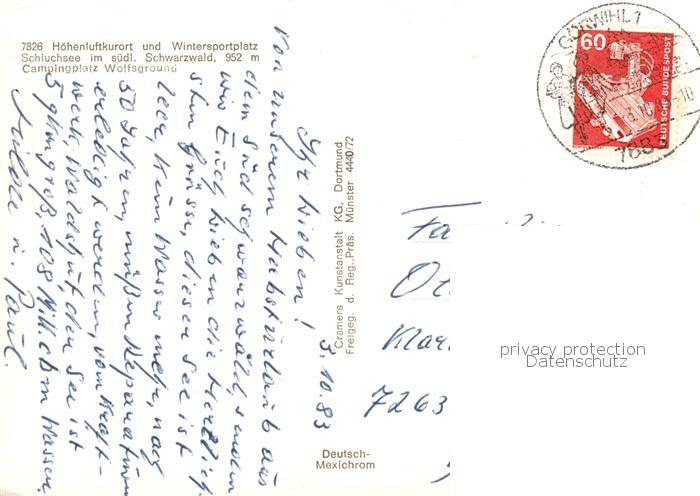 7826 Höhenluftkurort und Wintersportplatz
Schluchsee im südl. Schwarzwald, 952 m
Campingplatz Wolfsground
Ihr Lieben! 3.10.83
Von unserem Herbsturlaub aus
dem Südschwarzwald, senden
wir Euch Lieben die herzlich-
sten Grüsse, dieser See ist
leer, kein Wasser mehr, nach
50 Jahren müssen Reparaturen
erledigt werden, vom Kraft-
werk, Waldshut, der See ist
5 qkm groß, 108 Mill. cbm Wasser.
u. Paul.
Cramers Kunstanstalt KG, Dortmund
Freigeg. d. Reg.-Präs. Münster 4440/72
Deutsch-
Mexichrom
GÖRWIHL 1
60
DEUTSCHE BUNDESPOST
Fa
Ot
7263
privacy protection
Datenschutz